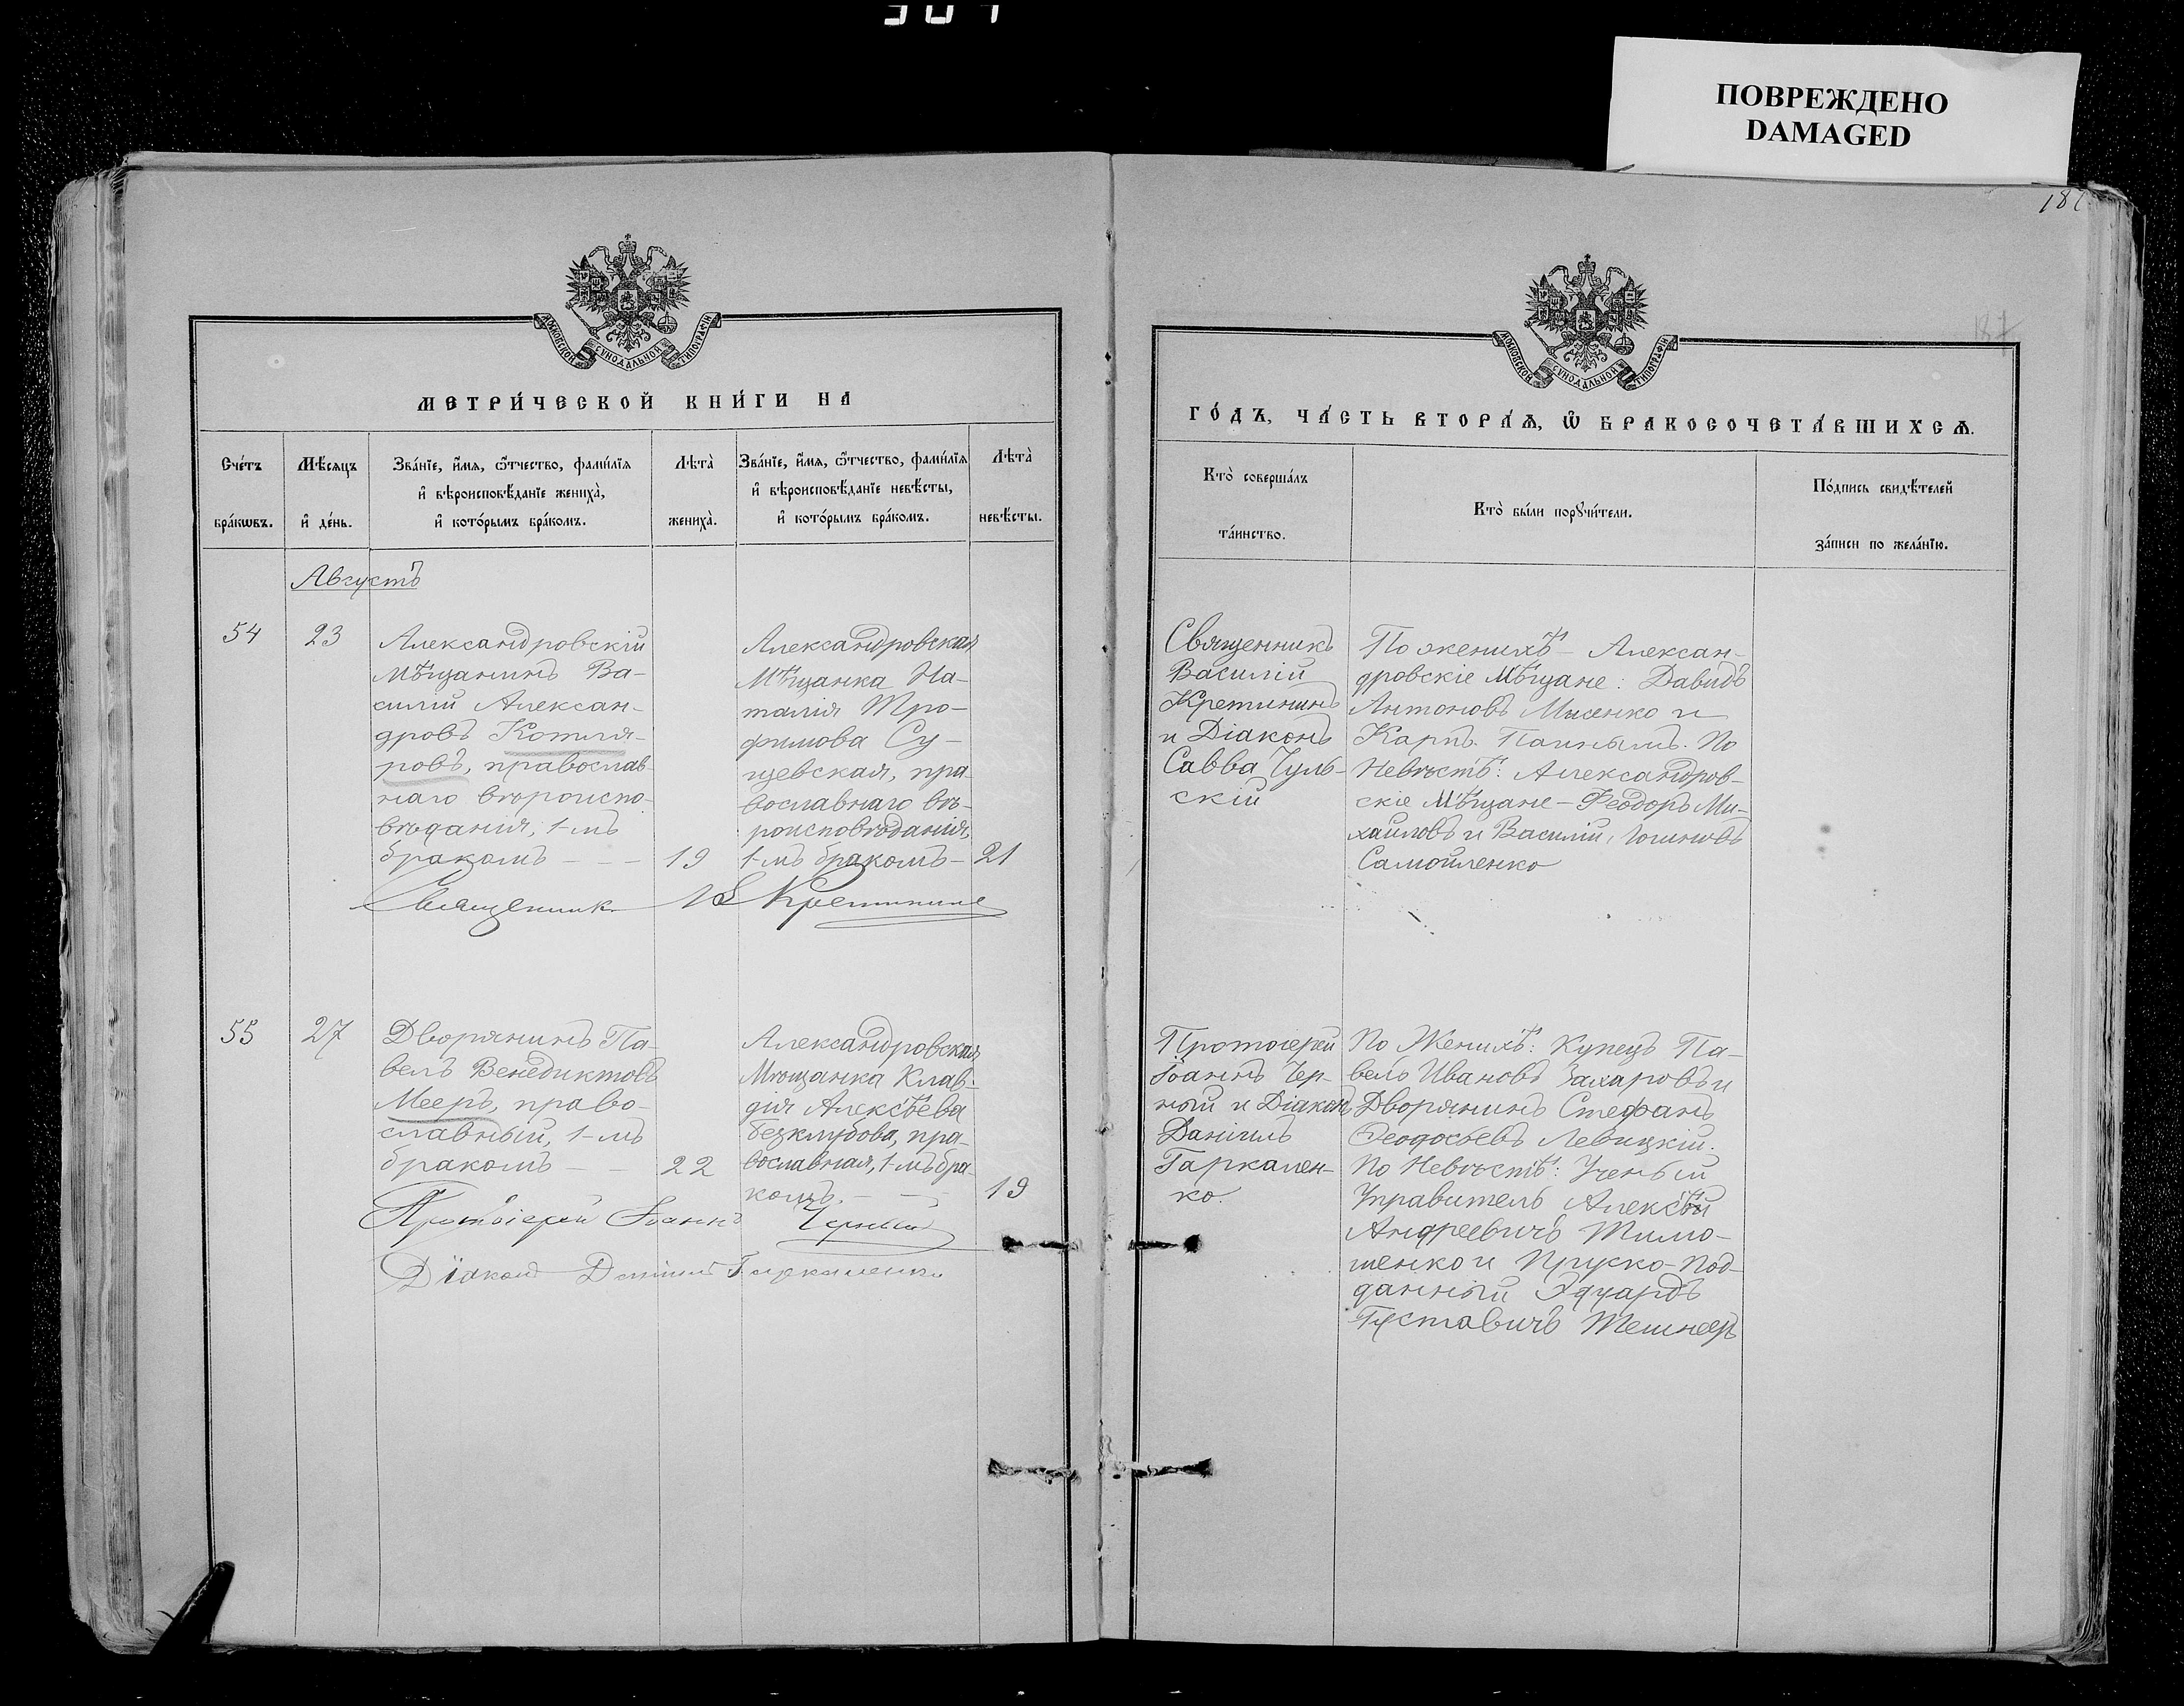 ПОВРЕЖДЕНО
DAMAGED
МОСКОВСКОЙ СУНОДАЛЬНОЙ ТИПОГРАФІИ
МЕТРИ́ЧЕСКОЙ КНИ́ГИ НА
Сче́тъ бра́кωвъ.
Мѣ́сяцъ и҆ де́нь.
Зва́нїе, и҆́мѧ, ѻ҆́тчество, фами́лїѧ
и҆ вѣроисповѣ́данїе жениха̀,
и҆ кото́рымъ бра́комъ.
Лѣта̀ жениха̀.
Зва́нїе, и҆́мѧ, ѻ҆́тчество, фами́лїѧ
и҆ вѣроисповѣ́данїе невѣ́сты,
и҆ кото́рымъ бра́комъ.
Лѣта̀ невѣ́сты.
Августъ
54
23
Александровскій
Мѣщанинъ Ва-
силій Алексан-
дровъ Котля-
ровъ, православ-
наго вѣроиспо-
вѣданія, 1-мъ
бракомъ - - -
19
Александровская
Мѣщанка На-
талія Тро-
фимова Су-
щевская, пра-
вославнаго вѣ-
роисповѣданія,
1-мъ бракомъ -
21
Священник В Кретининъ
55
27
Дворянинъ Па-
велъ Венедиктовъ
Мееръ, право-
славный, 1-мъ
бракомъ - -
22
Александровская
Мѣщанка Клав-
дія Алексѣева
Безклубова, пра-
вославная, 1-мъ бра-
комъ. - -
19
Протоіерей Іоаннъ Черный
Діаконъ Даніилъ Гаркаленко
187
МОСКОВСКОЙ СУНОДАЛЬНОЙ ТИПОГРАФІИ
ГО́ДЪ, ЧА́СТЬ ВТОРА́Ѧ, Ѡ҆ БРАКОСОЧЕТА́ВШИХСѦ.
Кто̀ соверша́лъ
та́инство.
Кто̀ бы́ли порꙋчи́тели.
По́дпись свидѣ́телей
за́писи по жела́нїю.
Священникъ
Василій
Кретининъ
и Діаконъ
Савва Чуль-
скій
По женихѣ - Алексан-
дровскіе Мѣщане: Давидъ
Антоновъ Мисенко и
Карпъ. По
Невѣстѣ: Александров-
скіе Мѣщане - Феодоръ Ми-
хайловъ и Василій
Самойленко
Протоіерей
Іоаннъ Чер-
ный и Діаконъ
Даніилъ
Гаркален-
ко.
По Женихѣ: Купецъ Па-
велъ Ивановъ Захаровъ и
Дворянинъ Стефанъ
Феодосьевъ Левицкій.
По Невѣстѣ: Ученый
Управитель Алексѣй
Андреевичъ Тимо-
шенко и Пруско-Под-
данный Эдуардъ
Густавичъ Тешнеръ